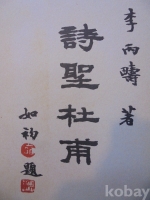 李丙疇 著
詩聖杜甫
如初 題
kobay